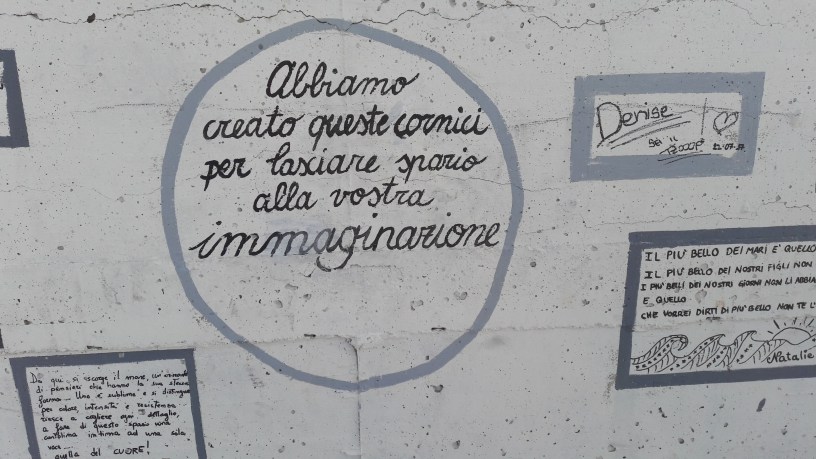 Abbiamo
creato queste cornici
per lasciare spazio
alla vostra
immaginazione
Denise
sei il
12·07·17
IL PIU' BELLO DEI MARI E' QUELLO
IL PIU' BELLO DEI NOSTRI FIGLI NON
I PIU' BELLI DEI NOSTRI GIORNI NON LI ABBIA
E QUELLO
CHE VORREI DIRTI DI PIU' BELLO NON TE L'
Natalie
Da qui si scorge il mare, un'
di pensieri che hanno la sua stessa
forma... Uno è sublime e si distingue
per odore, intensità e resistenza
riesce a cogliere ogni dettaglio,
a fare di questo spazio una
ad una sola
voce...
quella del CUORE!